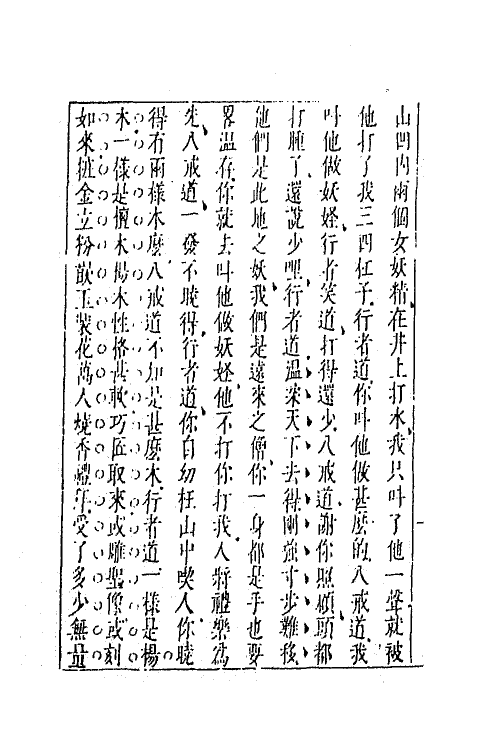 山凹內兩個女妖精在井上打水我只叫了他一聲就被
他打了我三四杠子行者道你叫他做甚麼的八戒道我
叫他做妖怪行者笑道打得還少八戒道謝你照顧頭都
打腫了還說少哩行者道溫柔天下去得剛強寸步難移
他們是此地之妖我們是遠來之僧你一身都是手也要
畧溫存你就去叫他做妖怪他不打你打我人將禮樂為
先八戒道一發不曉得行者道你自幼在山中喫人你曉
得有兩樣木麼八戒道不知是甚麼木行者道一樣是楊
木一樣是檀木楊木性格甚軟巧匠取來或雕聖像或刻
如來粧金立粉嵌玉裝花萬人燒香禮拜受了多少無量